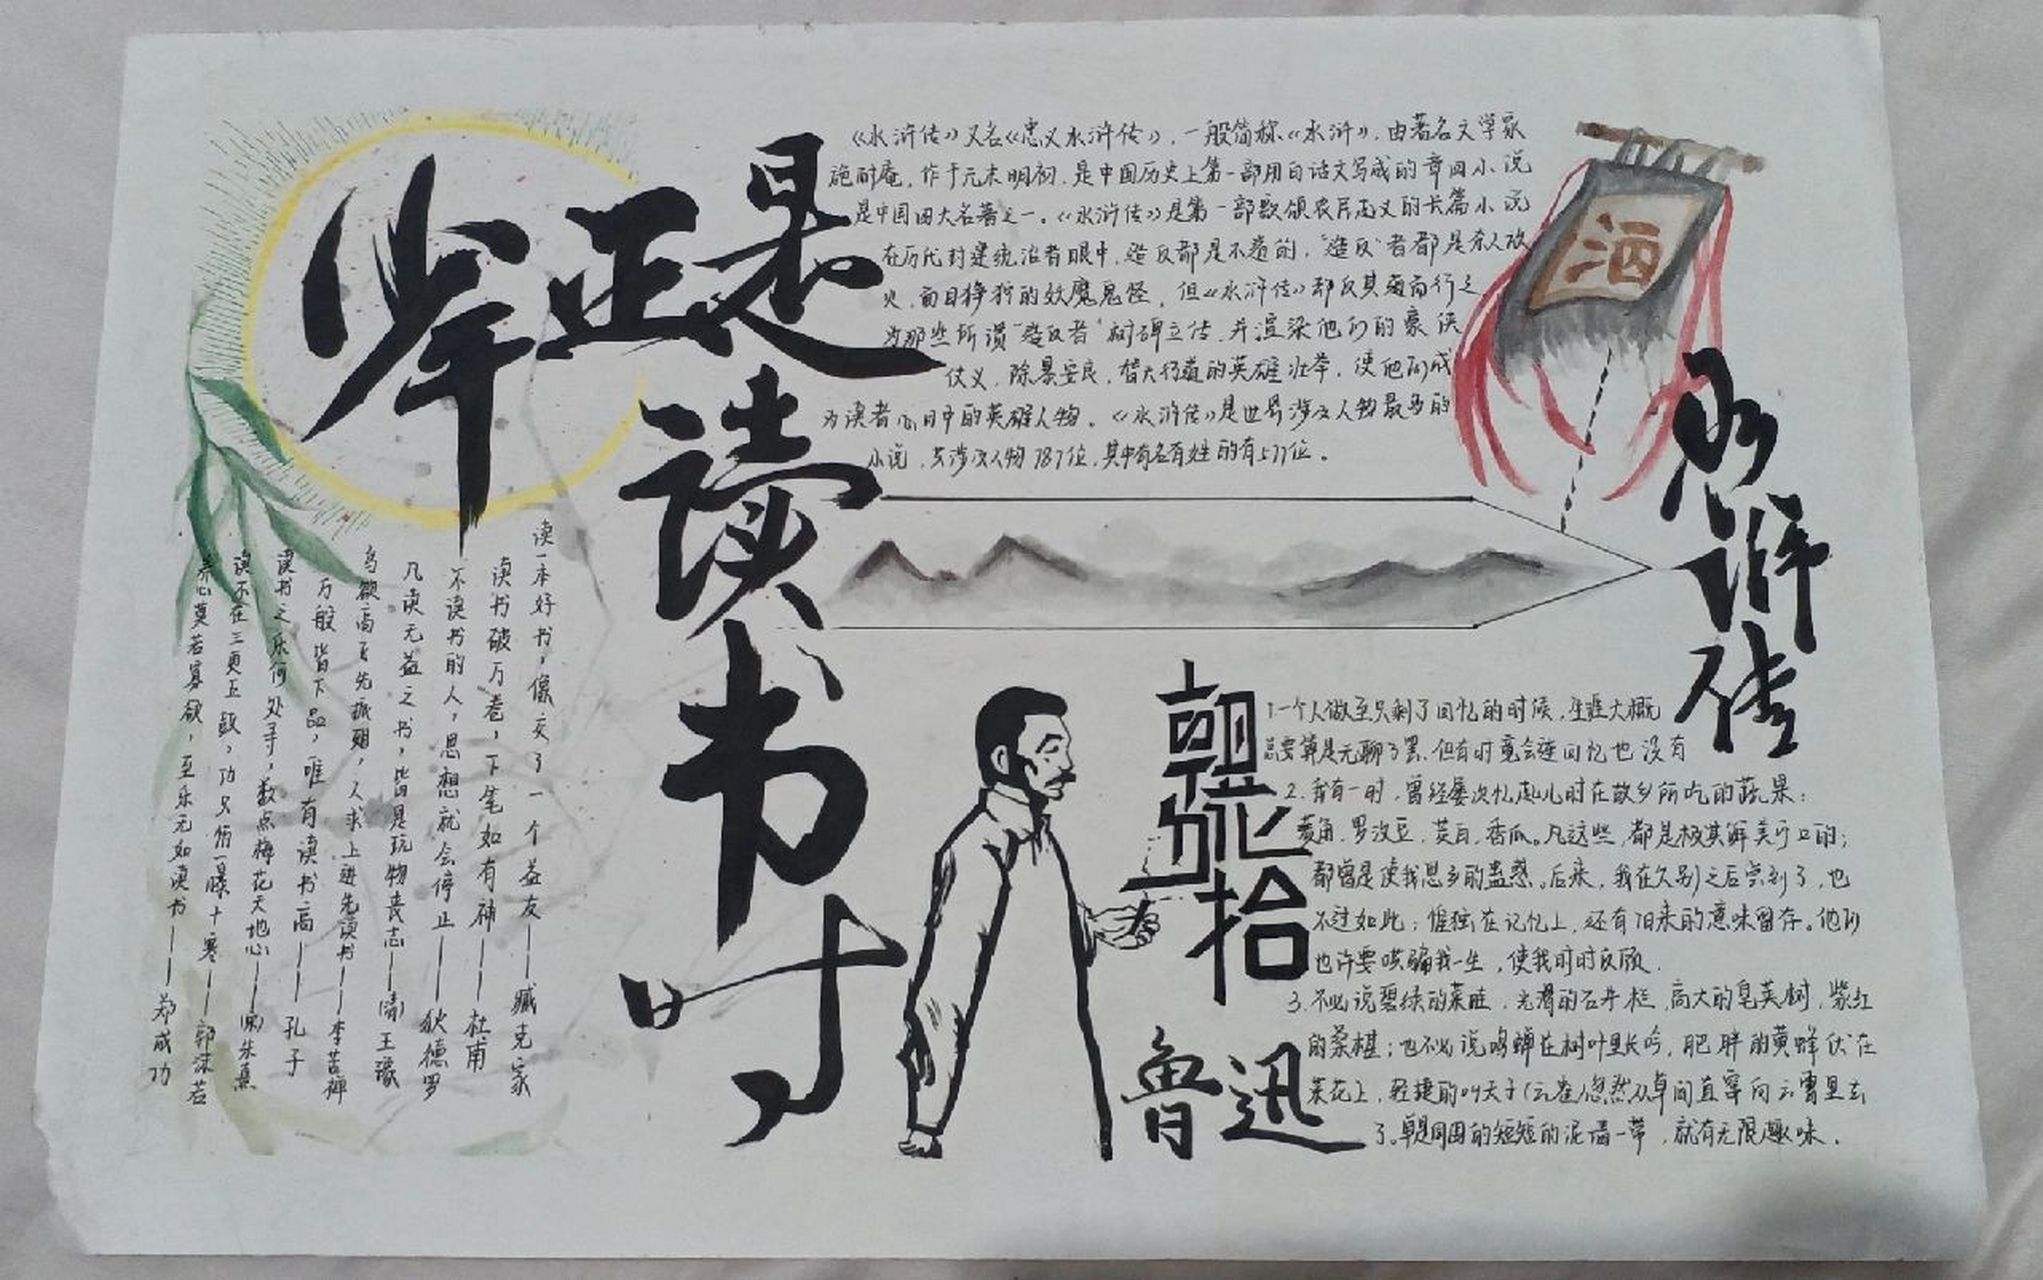 少年正是读书时
《水浒传》又名《忠义水浒传》，一般简称《水浒》，由著名文学家
施耐庵，作于元末明初，是中国历史上第一部用白话文写成的章回小说
是中国四大名著之一。《水浒传》是第一部歌颂农民起义的长篇小说
在历代封建统治者眼中，造反都是不道的，“造反”者都是杀人放
火，面目狰狞的妖魔鬼怪，但《水浒传》却反其道而行之
为那些所谓“造反者”树碑立传，并渲染他们的豪侠
仗义，除暴安良，替天行道的英雄壮举，使他们成
为读者心目中的英雄人物。《水浒传》是世界涉及人物最多的
小说，共涉及人物787位，其中有名有姓的有577位。
酒
水浒传
读一本好书，像交了一个益友——臧克家
读书破万卷，下笔如有神——杜甫
不读书的人，思想就会停止——狄德罗
凡读无益之书，皆是玩物丧志——（清）王豫
鸟欲高飞先振翅，人求上进先读书——李苦禅
万般皆下品，唯有读书高——孔子
读书之乐何处寻，数点梅花天地心——（宋）朱熹
读不在三更五鼓，功只怕一曝十寒——郭沫若
养心莫若寡欲，至乐无如读书——郑成功
朝花夕拾
鲁迅
1.一个人做到只剩了回忆的时候，生涯大概
总要算是无聊了罢，但有时竟会连回忆也没有
2.我有一时，曾经屡次忆起儿时在故乡所吃的蔬果：
菱角，罗汉豆，茭白，香瓜。凡这些，都是极其鲜美可口的；
都曾是使我思乡的蛊惑。后来，我在久别之后尝到了，也
不过如此；惟独在记忆上，还有旧来的意味留存。他们
也许要哄骗我一生，使我时时反顾.
3.不必说碧绿的菜畦，光滑的石井栏，高大的皂荚树，紫红
的桑椹；也不必说鸣蝉在树叶里长吟，肥胖的黄蜂伏在
菜花上，轻捷的叫天子（云雀）忽然从草间直窜向云霄里去
了。单是周围的短短的泥墙一带，就有无限趣味.